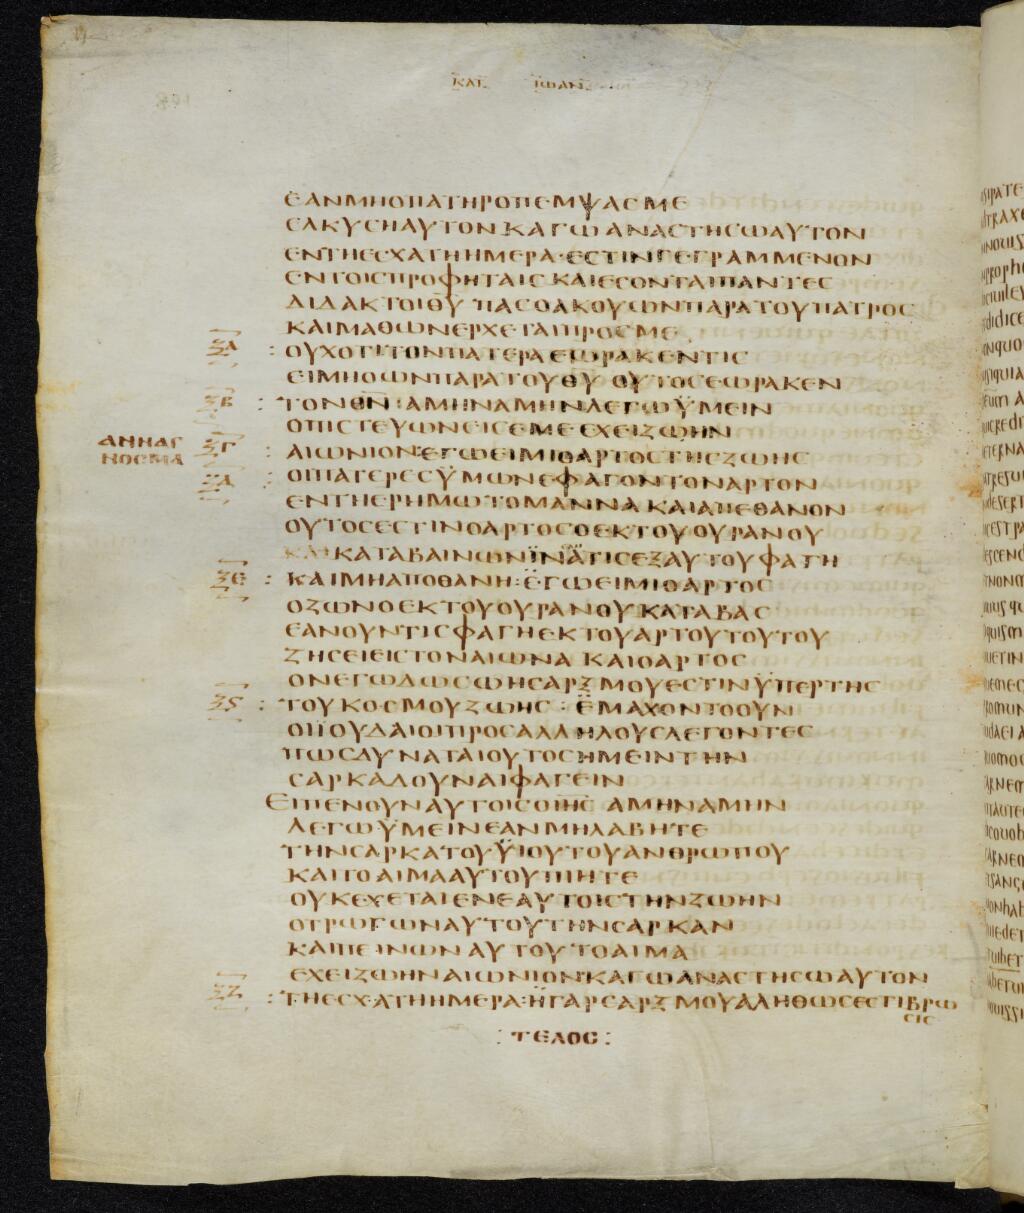 ΚΑΤ ΙΩΑΝ
ΕΑΝΜΗΟΠΑΤΗΡΟΠΕΜΨΑΣΜΕ
ΕΛΚΥΣΗΑΥΤΟΝΚΑΓΩΑΝΑΣΤΗΣΩΑΥΤΟΝ
ΕΝΤΗΕΣΧΑΤΗΗΜΕΡΑ·ΕΣΤΙΝΓΕΓΡΑΜΜΕΝΟΝ
ΕΝΤΟΙΣΠΡΟΦΗΤΑΙΣ ΚΑΙΕΣΟΝΤΑΙΠΑΝΤΕΣ
ΔΙΔΑΚΤΟΙΘΥ ΠΑΣΟΑΚΟΥΩΝΠΑΡΑΤΟΥΠΑΤΡΟΣ
ΚΑΙΜΑΘΩΝΕΡΧΕΤΑΙΠΡΟΣΜΕ
ΞΑ : ΟΥΧΟΤΙΤΟΝΠΑΤΕΡΑΕΩΡΑΚΕΝΤΙΣ
ΕΙΜΗΟΩΝΠΑΡΑΤΟΥΘΥ ΟΥΤΟΣΕΩΡΑΚΕΝ
ΞΒ : ΤΟΝΘΝ : ΑΜΗΝΑΜΗΝΛΕΓΩΫΜΕΙΝ
ΟΠΙΣΤΕΥΩΝΕΙΣΕΜΕ ΕΧΕΙΖΩΗΝ
ΑΝΝΑΓ
ΝΟΣΜΑ
ΞΓ : ΑΙΩΝΙΟΝ·ΕΓΩΕΙΜΙΟΑΡΤΟΣΤΗΣΖΩΗΣ
ΞΔ : ΟΙΠΑΤΕΡΕΣΫΜΩΝΕΦΑΓΟΝΤΟΝΑΡΤΟΝ
ΕΝΤΗΕΡΗΜΩΤΟΜΑΝΝΑ ΚΑΙΑΠΕΘΑΝΟΝ
ΟΥΤΟΣΕΣΤΙΝΟΑΡΤΟΣΟΕΚΤΟΥΟΥΡΑΝΟΥ
ΚΑΤΑΒΑΙΝΩΝΪΝΑΤΙΣΕΞΑΥΤΟΥΦΑΓΗ
ΞΕ : ΚΑΙΜΗΑΠΟΘΑΝΗ : ΕΓΩΕΙΜΙΟΑΡΤΟΣ
ΟΖΩΝΟΕΚΤΟΥΟΥΡΑΝΟΥΚΑΤΑΒΑΣ
ΕΑΝΟΥΝΤΙΣΦΑΓΗΕΚΤΟΥΑΡΤΟΥΤΟΥΤΟΥ
ΖΗΣΕΙΕΙΣΤΟΝΑΙΩΝΑ ΚΑΙΟΑΡΤΟΣ
ΟΝΕΓΩΔΩΣΩΗΣΑΡΞΜΟΥΕΣΤΙΝΫΠΕΡΤΗΣ
ΞϚ : ΤΟΥΚΟΣΜΟΥΖΩΗΣ : ΕΜΑΧΟΝΤΟΟΥΝ
ΟΙΪΟΥΔΑΙΟΙΠΡΟΣΑΛΛΗΛΟΥΣΛΕΓΟΝΤΕΣ
ΠΩΣΔΥΝΑΤΑΙΟΥΤΟΣΗΜΕΙΝΤΗΝ
ΣΑΡΚΑΔΟΥΝΑΙΦΑΓΕΙΝ
ΕΙΠΕΝΟΥΝΑΥΤΟΙΣΟΙΗΣ ΑΜΗΝΑΜΗΝ
ΛΕΓΩΫΜΕΙΝΕΑΝΜΗΛΑΒΗΤΕ
ΤΗΝΣΑΡΚΑΤΟΥΫΙΟΥΤΟΥΑΝΘΡΩΠΟΥ
ΚΑΙΤΟΑΙΜΑΑΥΤΟΥΠΙΗΤΕ
ΟΥΚΕΧΕΤΑΙΕΝΕΑΥΤΟΙΣΤΗΝΖΩΗΝ
ΟΤΡΩΓΩΝΑΥΤΟΥΤΗΝΣΑΡΚΑΝ
ΚΑΙΠΕΙΝΩΝΑΥΤΟΥΤΟΑΙΜΑ
ΕΧΕΙΖΩΗΝΑΙΩΝΙΟΝ·ΚΑΓΩΑΝΑΣΤΗΣΩΑΥΤΟΝ
ΞΖ : ΤΗΕΣΧΑΤΗΗΜΕΡΑ·ΗΓΑΡΣΑΡΞΜΟΥΑΛΗΘΩΣΕΣΤΙΒΡΩ
ΣΙΣ
: ΤΕΛΟΣ :